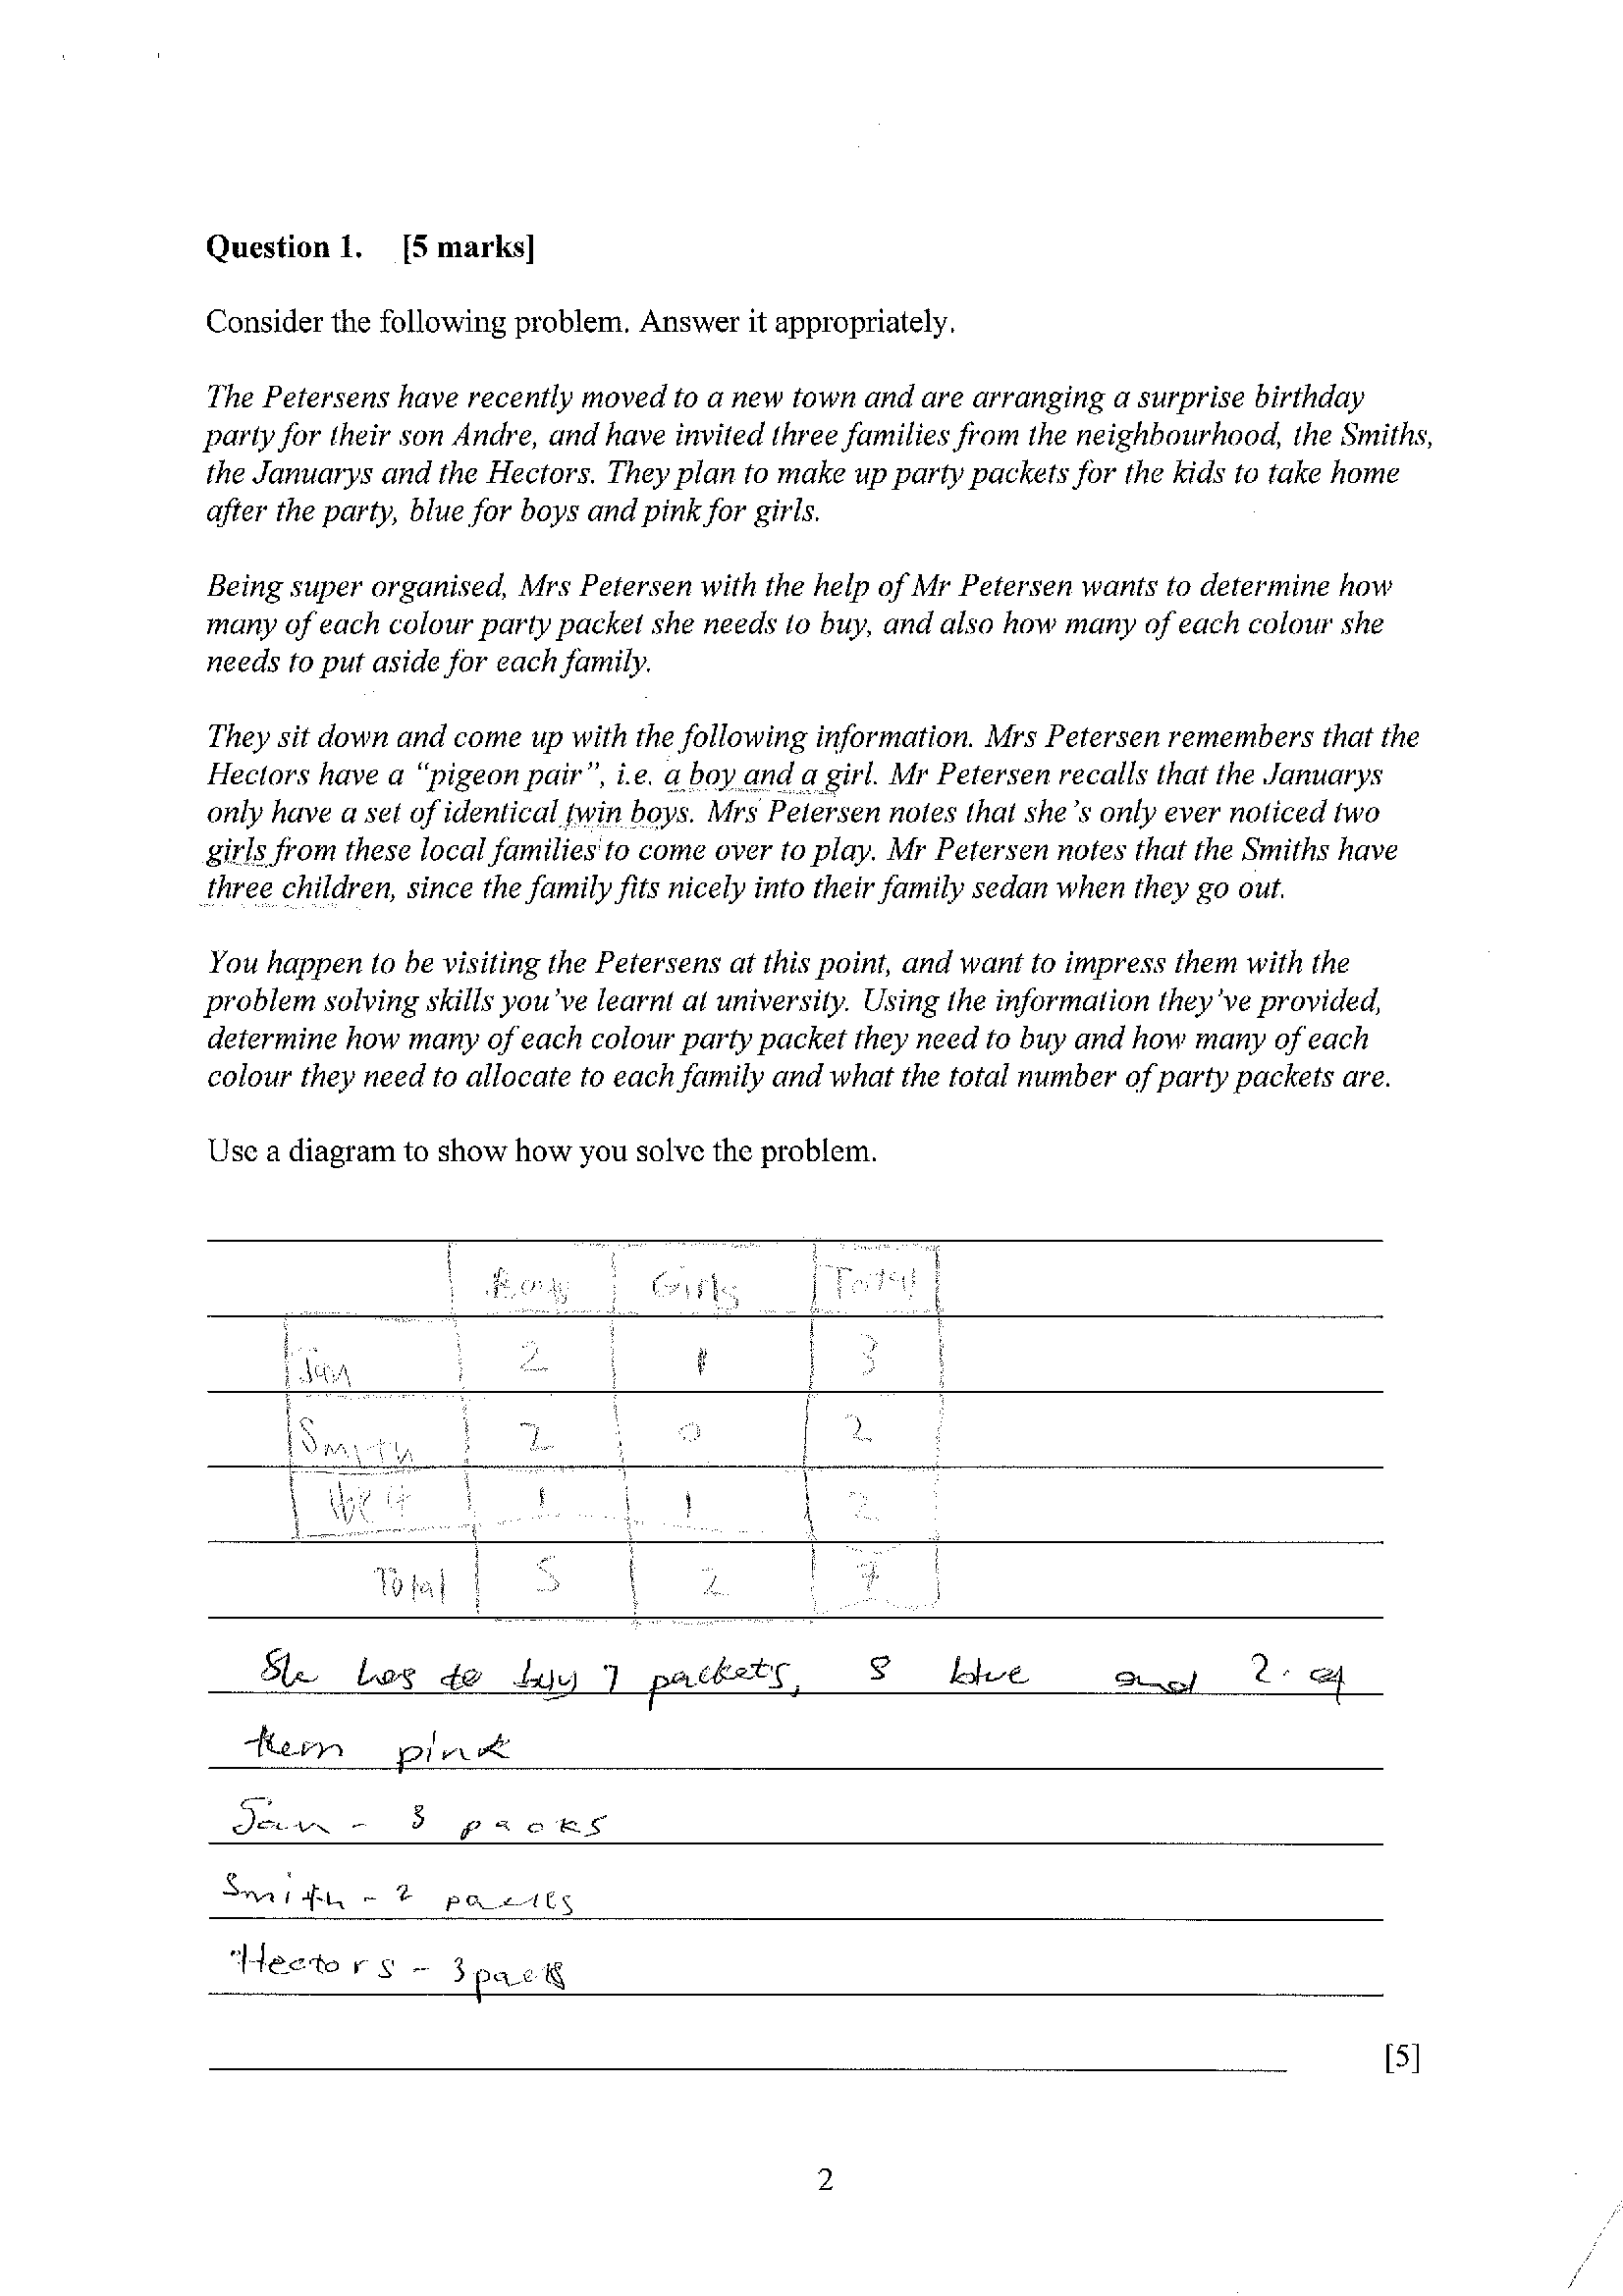 Question 1. [5 marks]
Consider the following problem. Answer it appropriately.
The Petersens have recently moved to a new town and are arranging a surprise birthday
party for their son Andre, and have invited three families from the neighbourhood, the Smiths,
the Januarys and the Hectors. They plan to make up party packets for the kids to take home
after the party, blue for boys and pink for girls.
Being super organised, Mrs Petersen with the help of Mr Petersen wants to determine how
many of each colour party packet she needs to buy, and also how many of each colour she
needs to put aside for each family.
They sit down and come up with the following information. Mrs Petersen remembers that the
Hectors have a “pigeon pair”, i.e. a boy and a girl. Mr Petersen recalls that the Januarys
only have a set of identical twin boys. Mrs Petersen notes that she’s only ever noticed two
girls from these local families to come over to play. Mr Petersen notes that the Smiths have
three children, since the family fits nicely into their family sedan when they go out.
You happen to be visiting the Petersens at this point, and want to impress them with the
problem solving skills you’ve learnt at university. Using the information they’ve provided,
determine how many of each colour party packet they need to buy and how many of each
colour they need to allocate to each family and what the total number of party packets are.
Use a diagram to show how you solve the problem.
Boys Girls Total
Jan 2 1 3
Smith 2 0 2
1 1 2
Total 5 2 7
She has to buy 7 packets, 5 blue and 2 of
them pink
Jan - 3 packs
Smith - 2 packs
Hectors - 3 pack
[5]
2